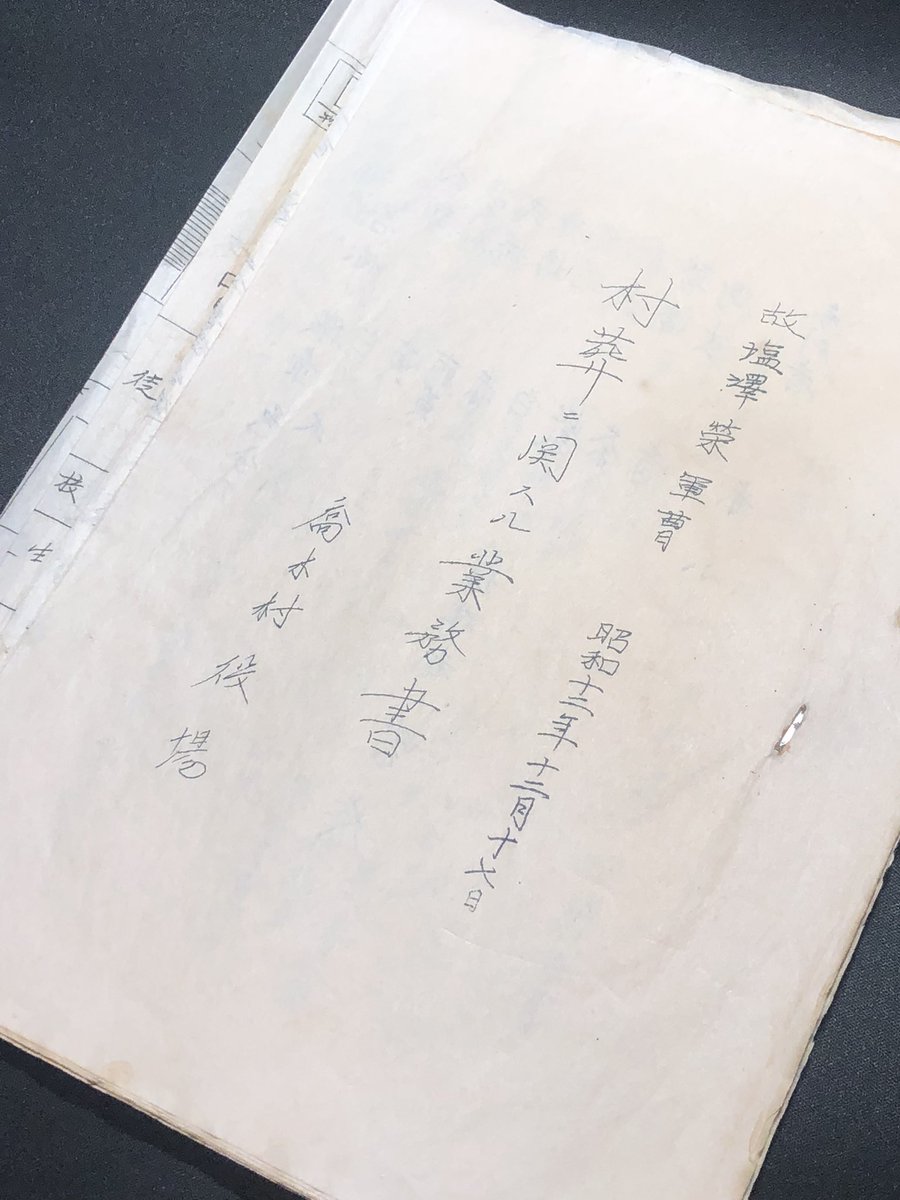 故塩澤榮軍曹
昭和十三年十二月十七日
村葬ニ関スル業務書
喬木村役場
徒
校
生